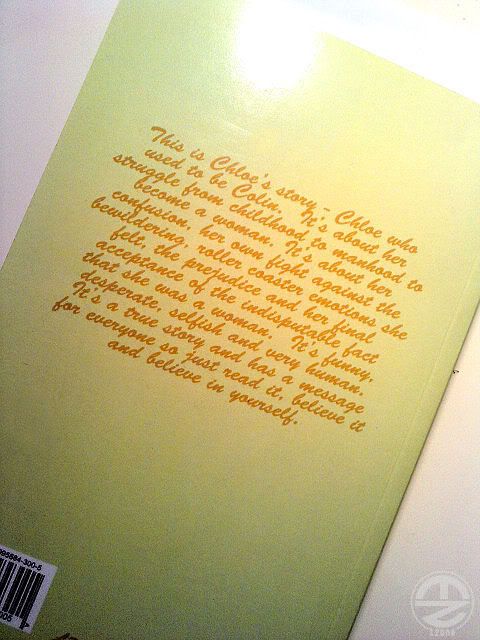 This is Chloe's story - Chloe who
used to be Colin. It's about her
struggle from childhood to manhood to
become a woman. It's about her
confusion, her own fight against the
bewildering, roller coaster emotions she
felt, the prejudice and her final
acceptance of the indisputable fact
that she was a woman. It's funny,
desperate, selfish and very human.
It's a true story and has a message
for everyone so just read it, believe it
and believe in yourself.